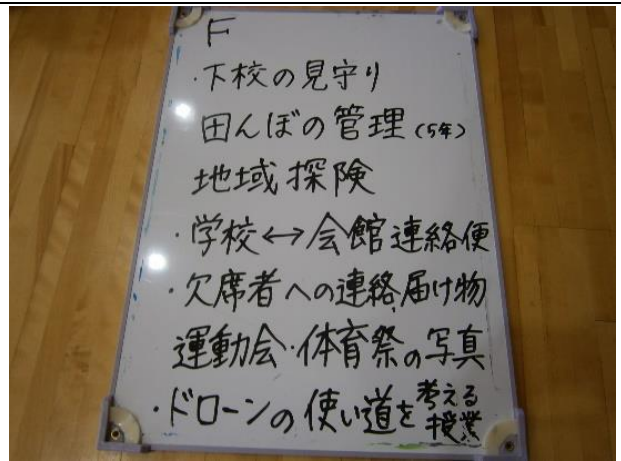 F
・下校の見守り
田んぼの管理(5年)
地域探険
・学校↔会館連絡便
・欠席者への連絡、届け物
運動会・体育祭の写真
・ドローンの使い道を考える授業